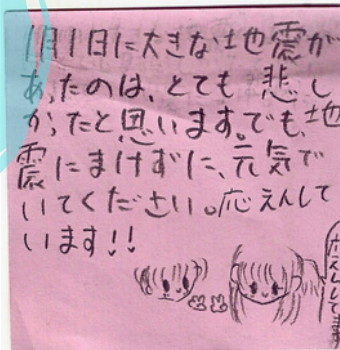 1月1日に大きな地震が
あったのは、とても悲し
かったと思います。でも、地
震にまけずに、元気で
いてください。応えんして
います!!
応えんしてます